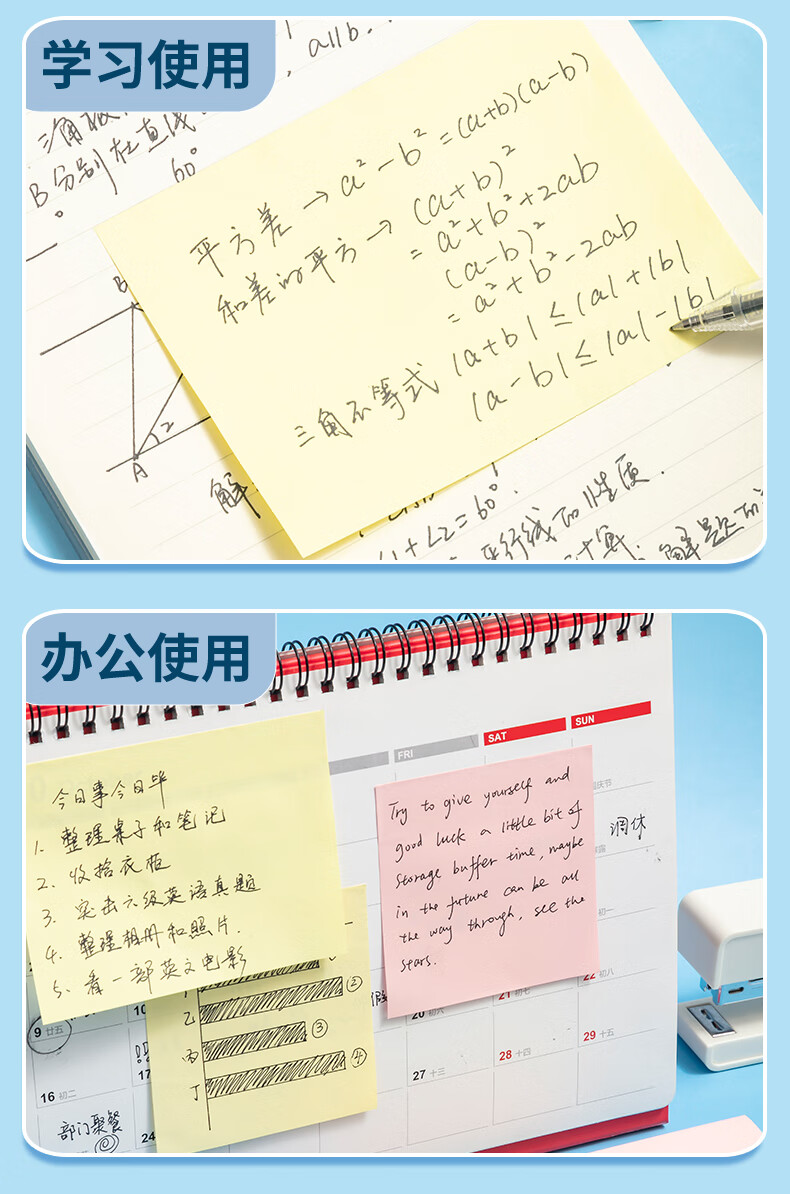 学习使用
a∥b.
B分别在直线
60°
平方差→a²-b²=(a+b)(a-b)
和差的平方→(a+b)²
=a²+b²+2ab
(a-b)²
=a²+b²-2ab
三角不等式 |a+b|≤|a|+|b|
|a-b|≤|a|-|b|
B
2
A
解
∠1+∠2=60°.
平行线的性质.
计算.
解题的
办公使用
FRI
SAT
SUN
今日事今日毕
1. 整理桌子和笔记
2. 收拾衣柜
3. 突击六级英语真题
4. 整理相册和照片.
5. 看一部英文电影
Try to give yourself and
good luck a little bit of
storage buffer time, maybe
in the future can be all
the way through, see the
stars.
国庆节
调休
初一
乙 ②
丙 ③
丁 ④
9 廿五
10
20 初六
21 初七
22 初八
16 初二
17
27 十三
28 十四
29 十五
部门聚餐
24